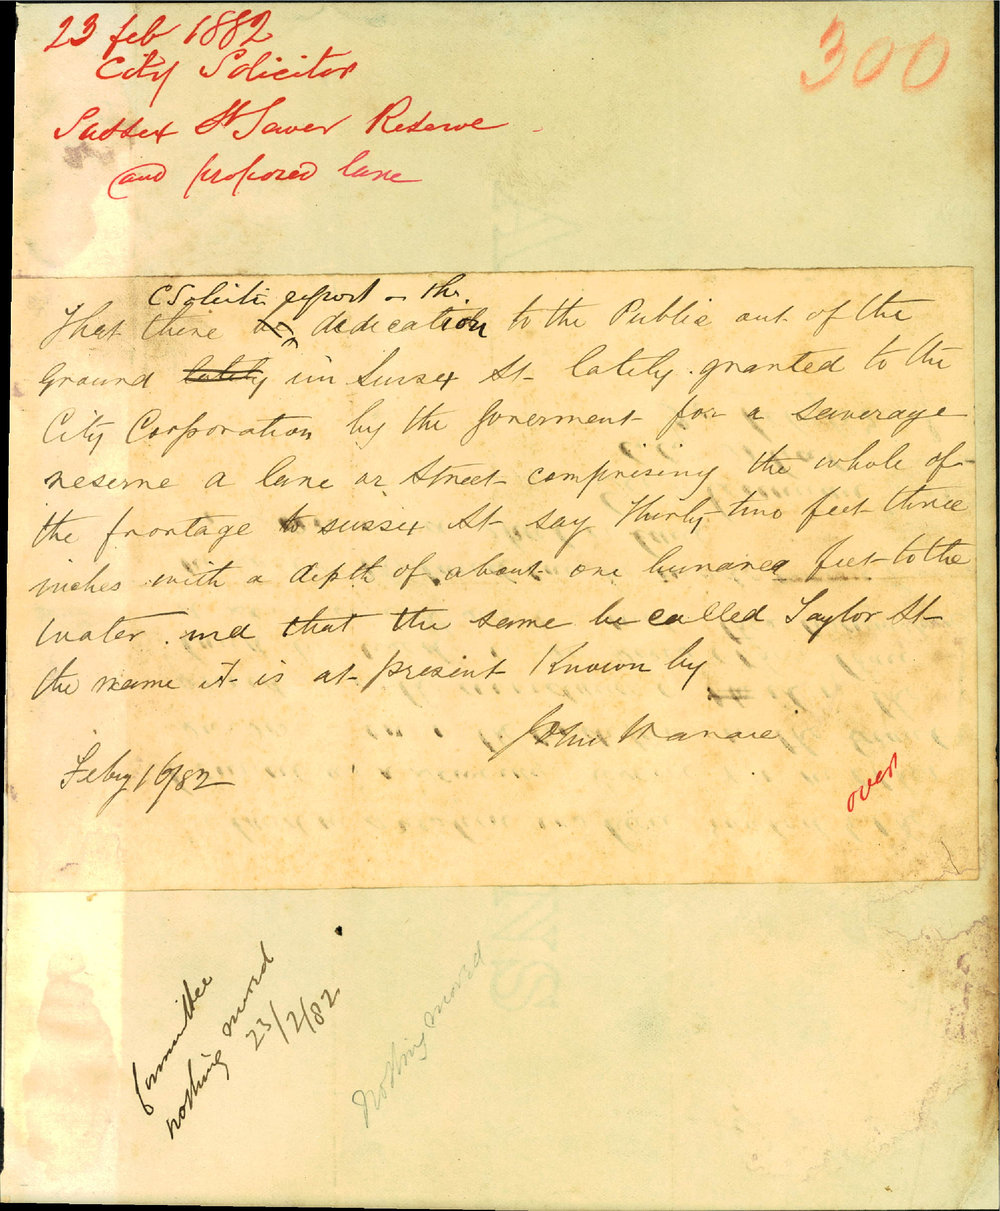 23 feb 1882
300
City Solicitor
Sussex St Sewer Reserve
and proposed lane
C Solicitr report on the
That there be dedication to the Public out of the
Ground lately in Sussex St lately granted to the
City Corporation by the Goverment for a Sewerage
reserve a lane or Street comprising the whole of
the frontage to sussex St say Thirty two feet three
inches with a depth of about one hundred feet to the
Water and that the same be called Taylor St
the name it is at present Known by
John
Feby 16/82
over
Committee
nothing moved
23/2/82
Nothing moved